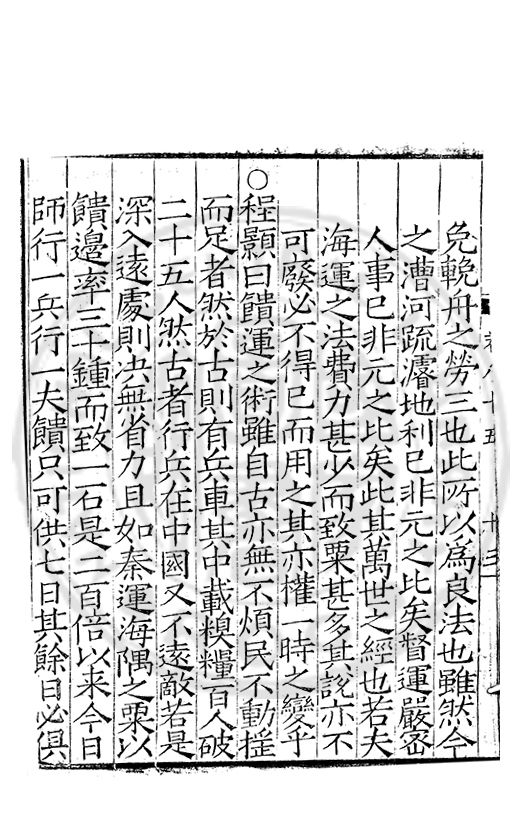 免輓舟之勞三也此所以為良法也雖然今
之漕河疏濬地利已非元之比矣督運嚴密
人事已非元之比矣此其萬世之經也若夫
海運之法費力甚少而致粟甚多其說亦不
可廢必不得已而用之其亦權一時之變乎
○程顥曰饋運之術雖自古亦無不煩民不動揺
而足者然於古則有兵車其中載糗糧百人破
二十五人然古者行兵在中國又不遠敵若是
深入遠處則决無省力且如秦運海隅之粟以
饋邊率三十鍾而致一石是二百倍以来今日
師行一兵行一夫饋只可供七日其餘日必俱